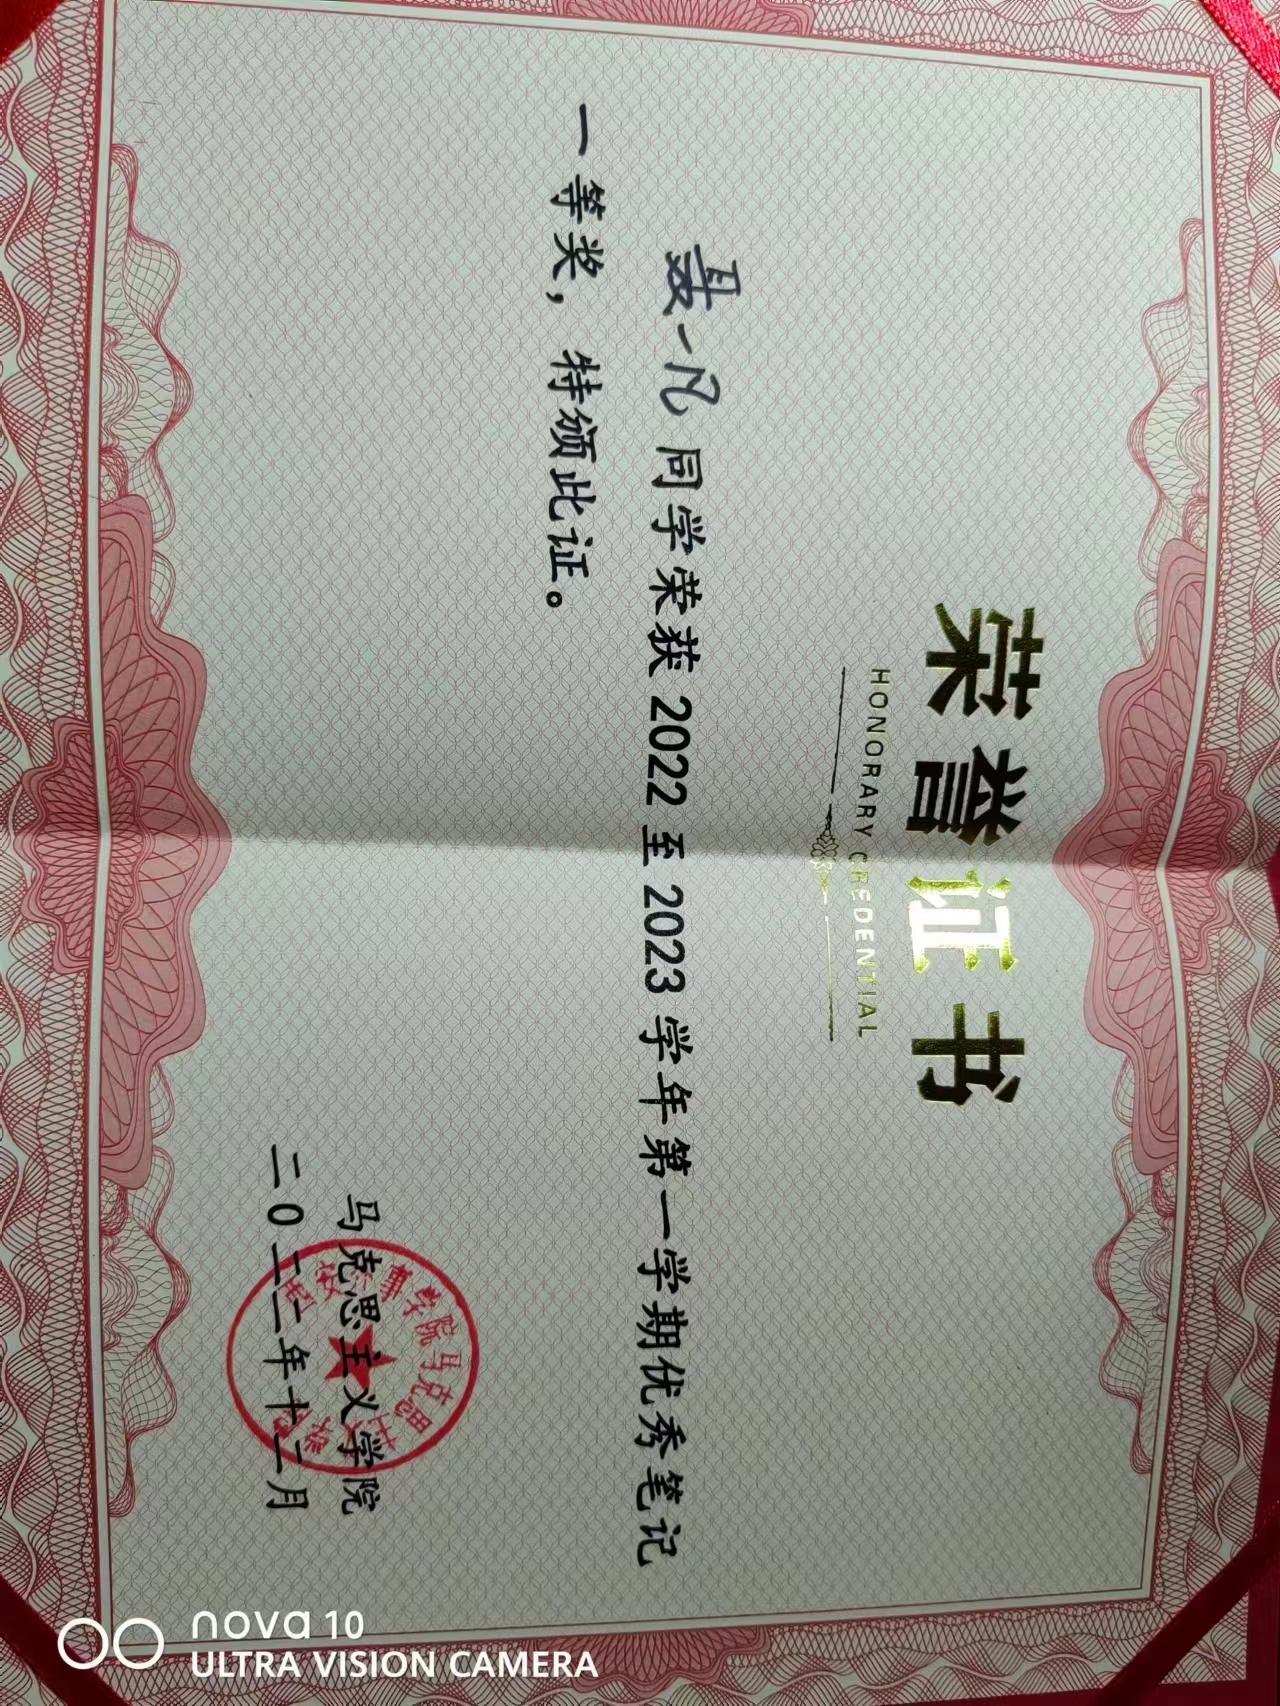 荣誉证书
HONORARY CREDENTIAL
聂一凡同学荣获2022至2023学年第一学期优秀笔记
一等奖，特颁此证。
马克思主义学院
二〇二二年十二月
学院马克思主义学院
nova 10
ULTRA VISION CAMERA